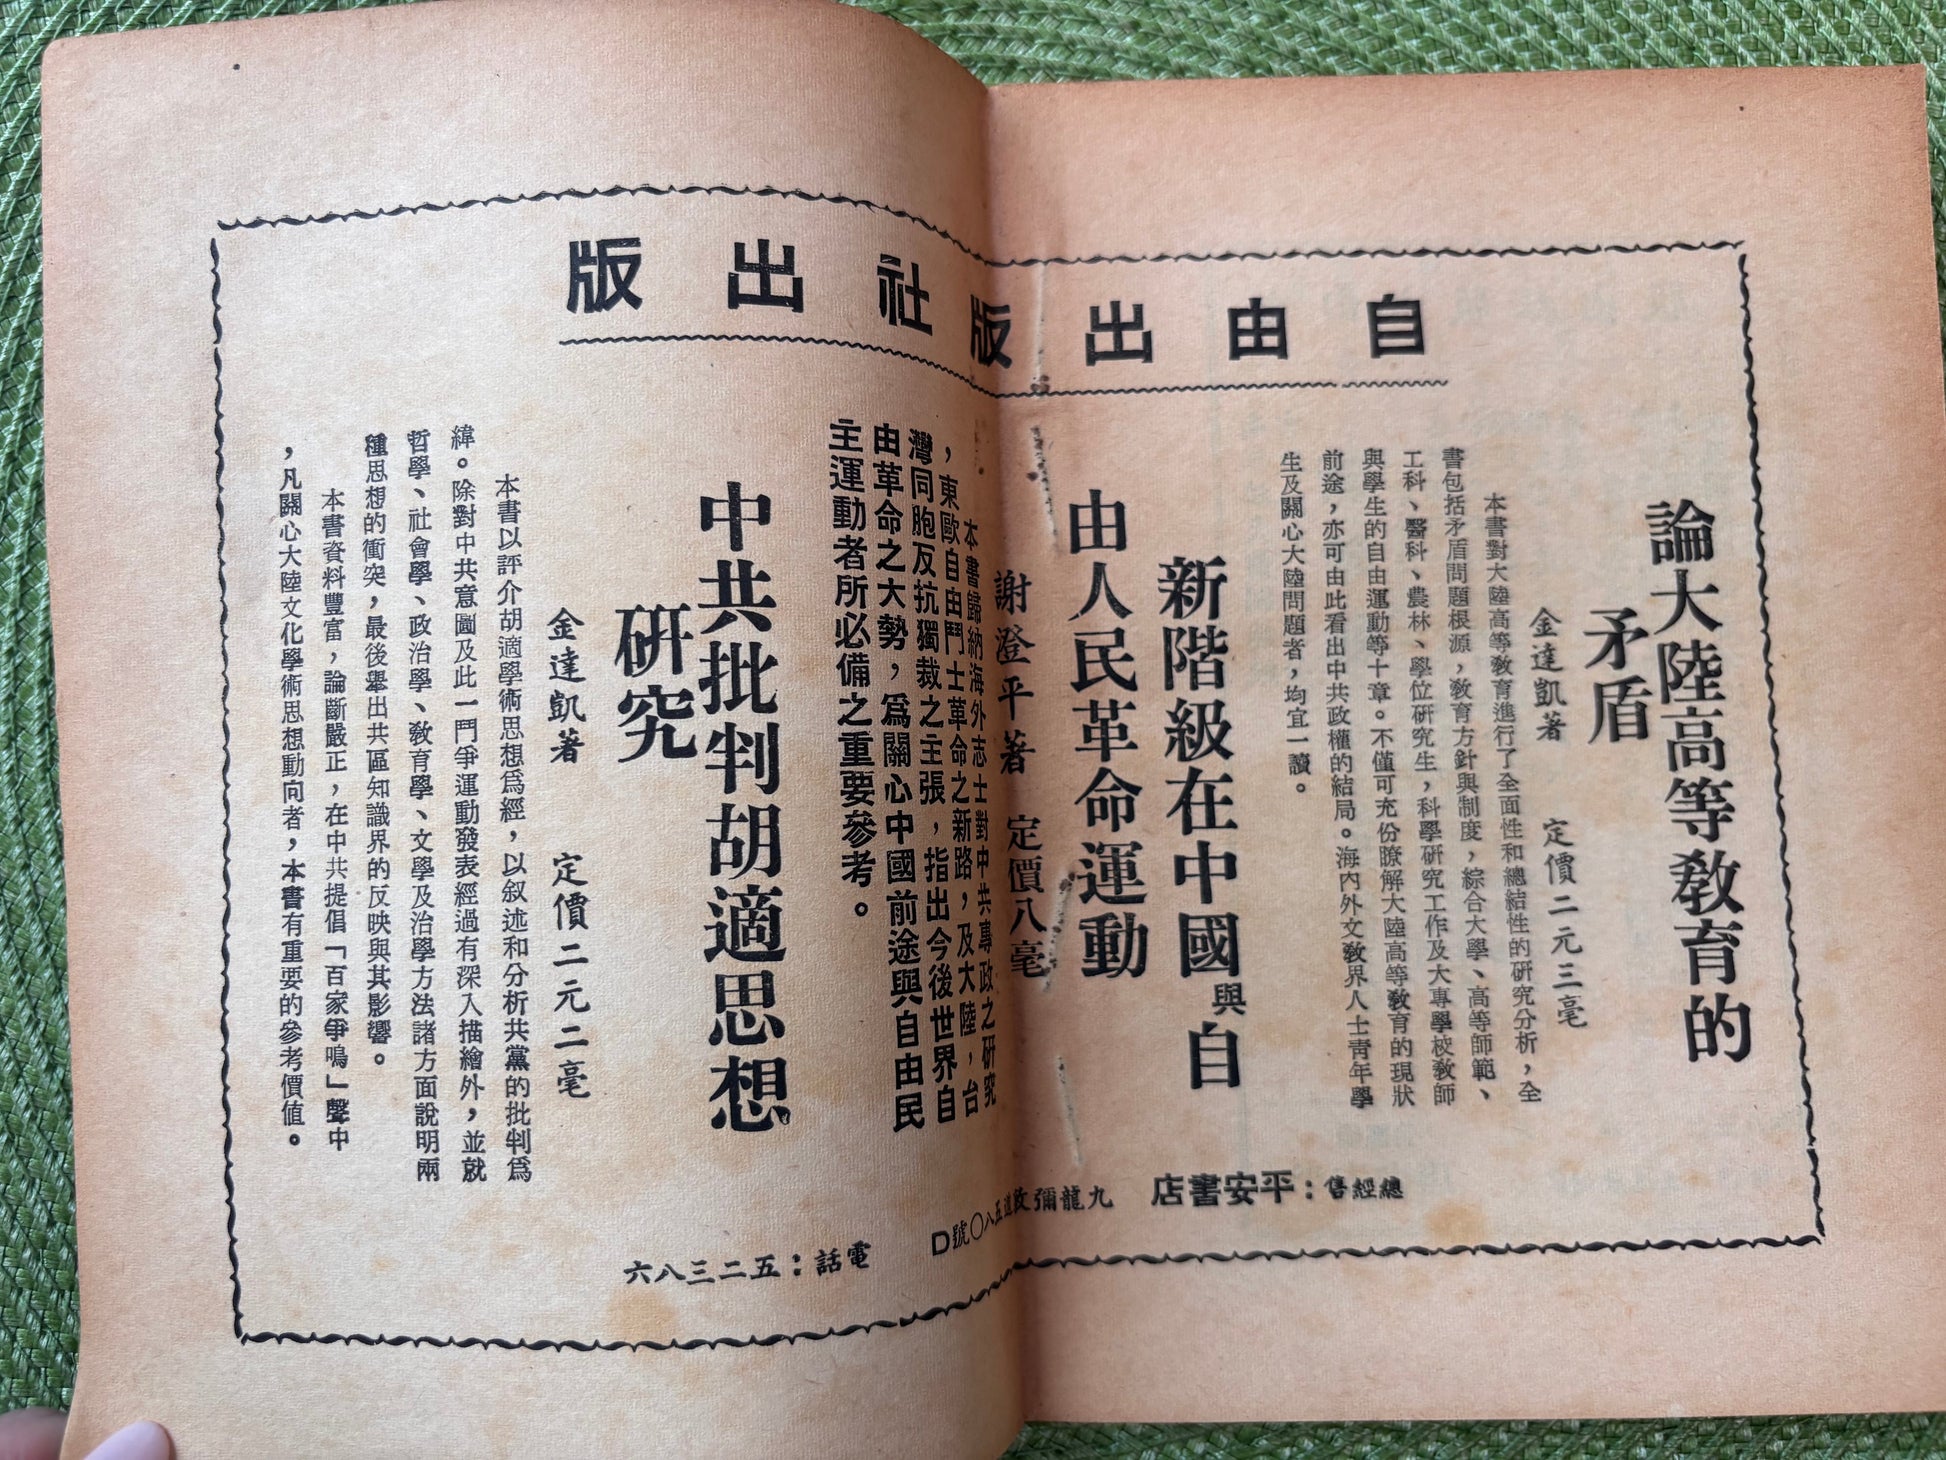 自由出版社出版
論大陸高等教育的
矛盾
金達凱著　定價二元三毫
本書對大陸高等教育進行了全面性和總結性的研究分析，全
書包括矛盾問題根源，教育方針與制度，綜合大學、高等師範、
工科、醫科、農林、學位研究生，科學研究工作及大專學校教師
與學生的自由運動等十章。不僅可充份瞭解大陸高等教育的現狀
前途，亦可由此看出中共政權的結局。海內外文教界人士青年學
生及關心大陸問題者，均宜一讀。
新階級在中國與自
由人民革命運動
謝澄平著　定價八毫
本書歸納海外志士對中共專政之研究
，東歐自由鬥士革命之新路，及大陸，台
灣同胞反抗獨裁之主張，指出今後世界自
由革命之大勢，爲關心中國前途與自由民
主運動者所必備之重要參考。
中共批判胡適思想
研究
金達凱著　定價二元二毫
本書以評介胡適學術思想爲經，以叙述和分析共黨的批判爲
緯。除對中共意圖及此一鬥爭運動發表經過有深入描繪外，並就
哲學、社會學、政治學、教育學、文學及治學方法諸方面說明兩
種思想的衝突，最後舉出共區知識界的反映與其影響。
本書資料豐富，論斷嚴正，在中共提倡「百家爭鳴」聲中
，凡關心大陸文化學術思想動向者，本書有重要的參考價值。
總經售：平安書店　九龍彌敦道五八〇號D
電話：五二三八六